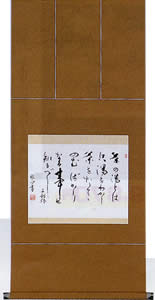 茶の湯とは
只湯をわかし
茶をたてて
のむばかり
なる事と
知るべし